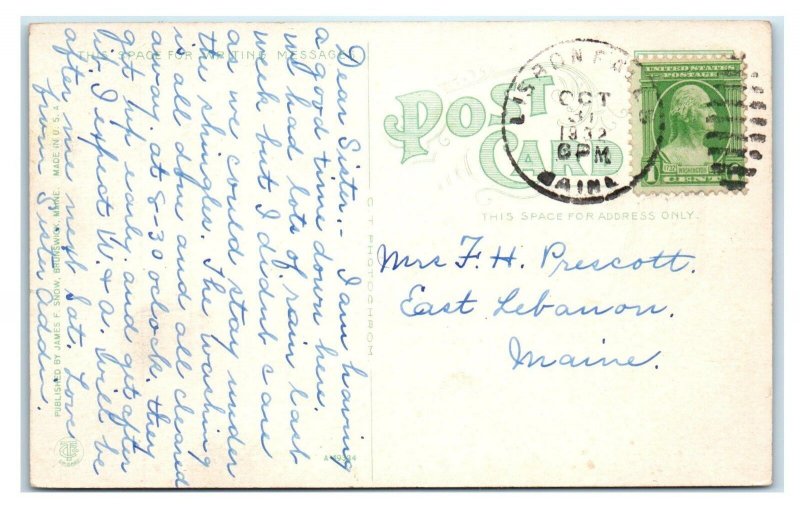 THIS SPACE FOR WRITING MESSAGES
Dear Sister:- I am having
a good time down here.
We had lots of rain last
week but I didn't care
as we could stay under
the shingles. The washing
is all down and all cleared
away at 8-30 oclock, they
got up early and got after
it. I expect W. & A. will be
after me next Sat. Love
from Sister Addie.
PUBLISHED BY JAMES F. SNOW, BRUNSWICK, MAINE. MADE IN U.S.A.
C.T. PHOTOCHROM
POST CARD
LISBON FALLS
OCT
31
1932
6 PM
MAINE
UNITED STATES
POSTAGE
1732 WASHINGTON
1 CENT
THIS SPACE FOR ADDRESS ONLY.
Mrs F. H. Prescott.
East Lebanon.
Maine.